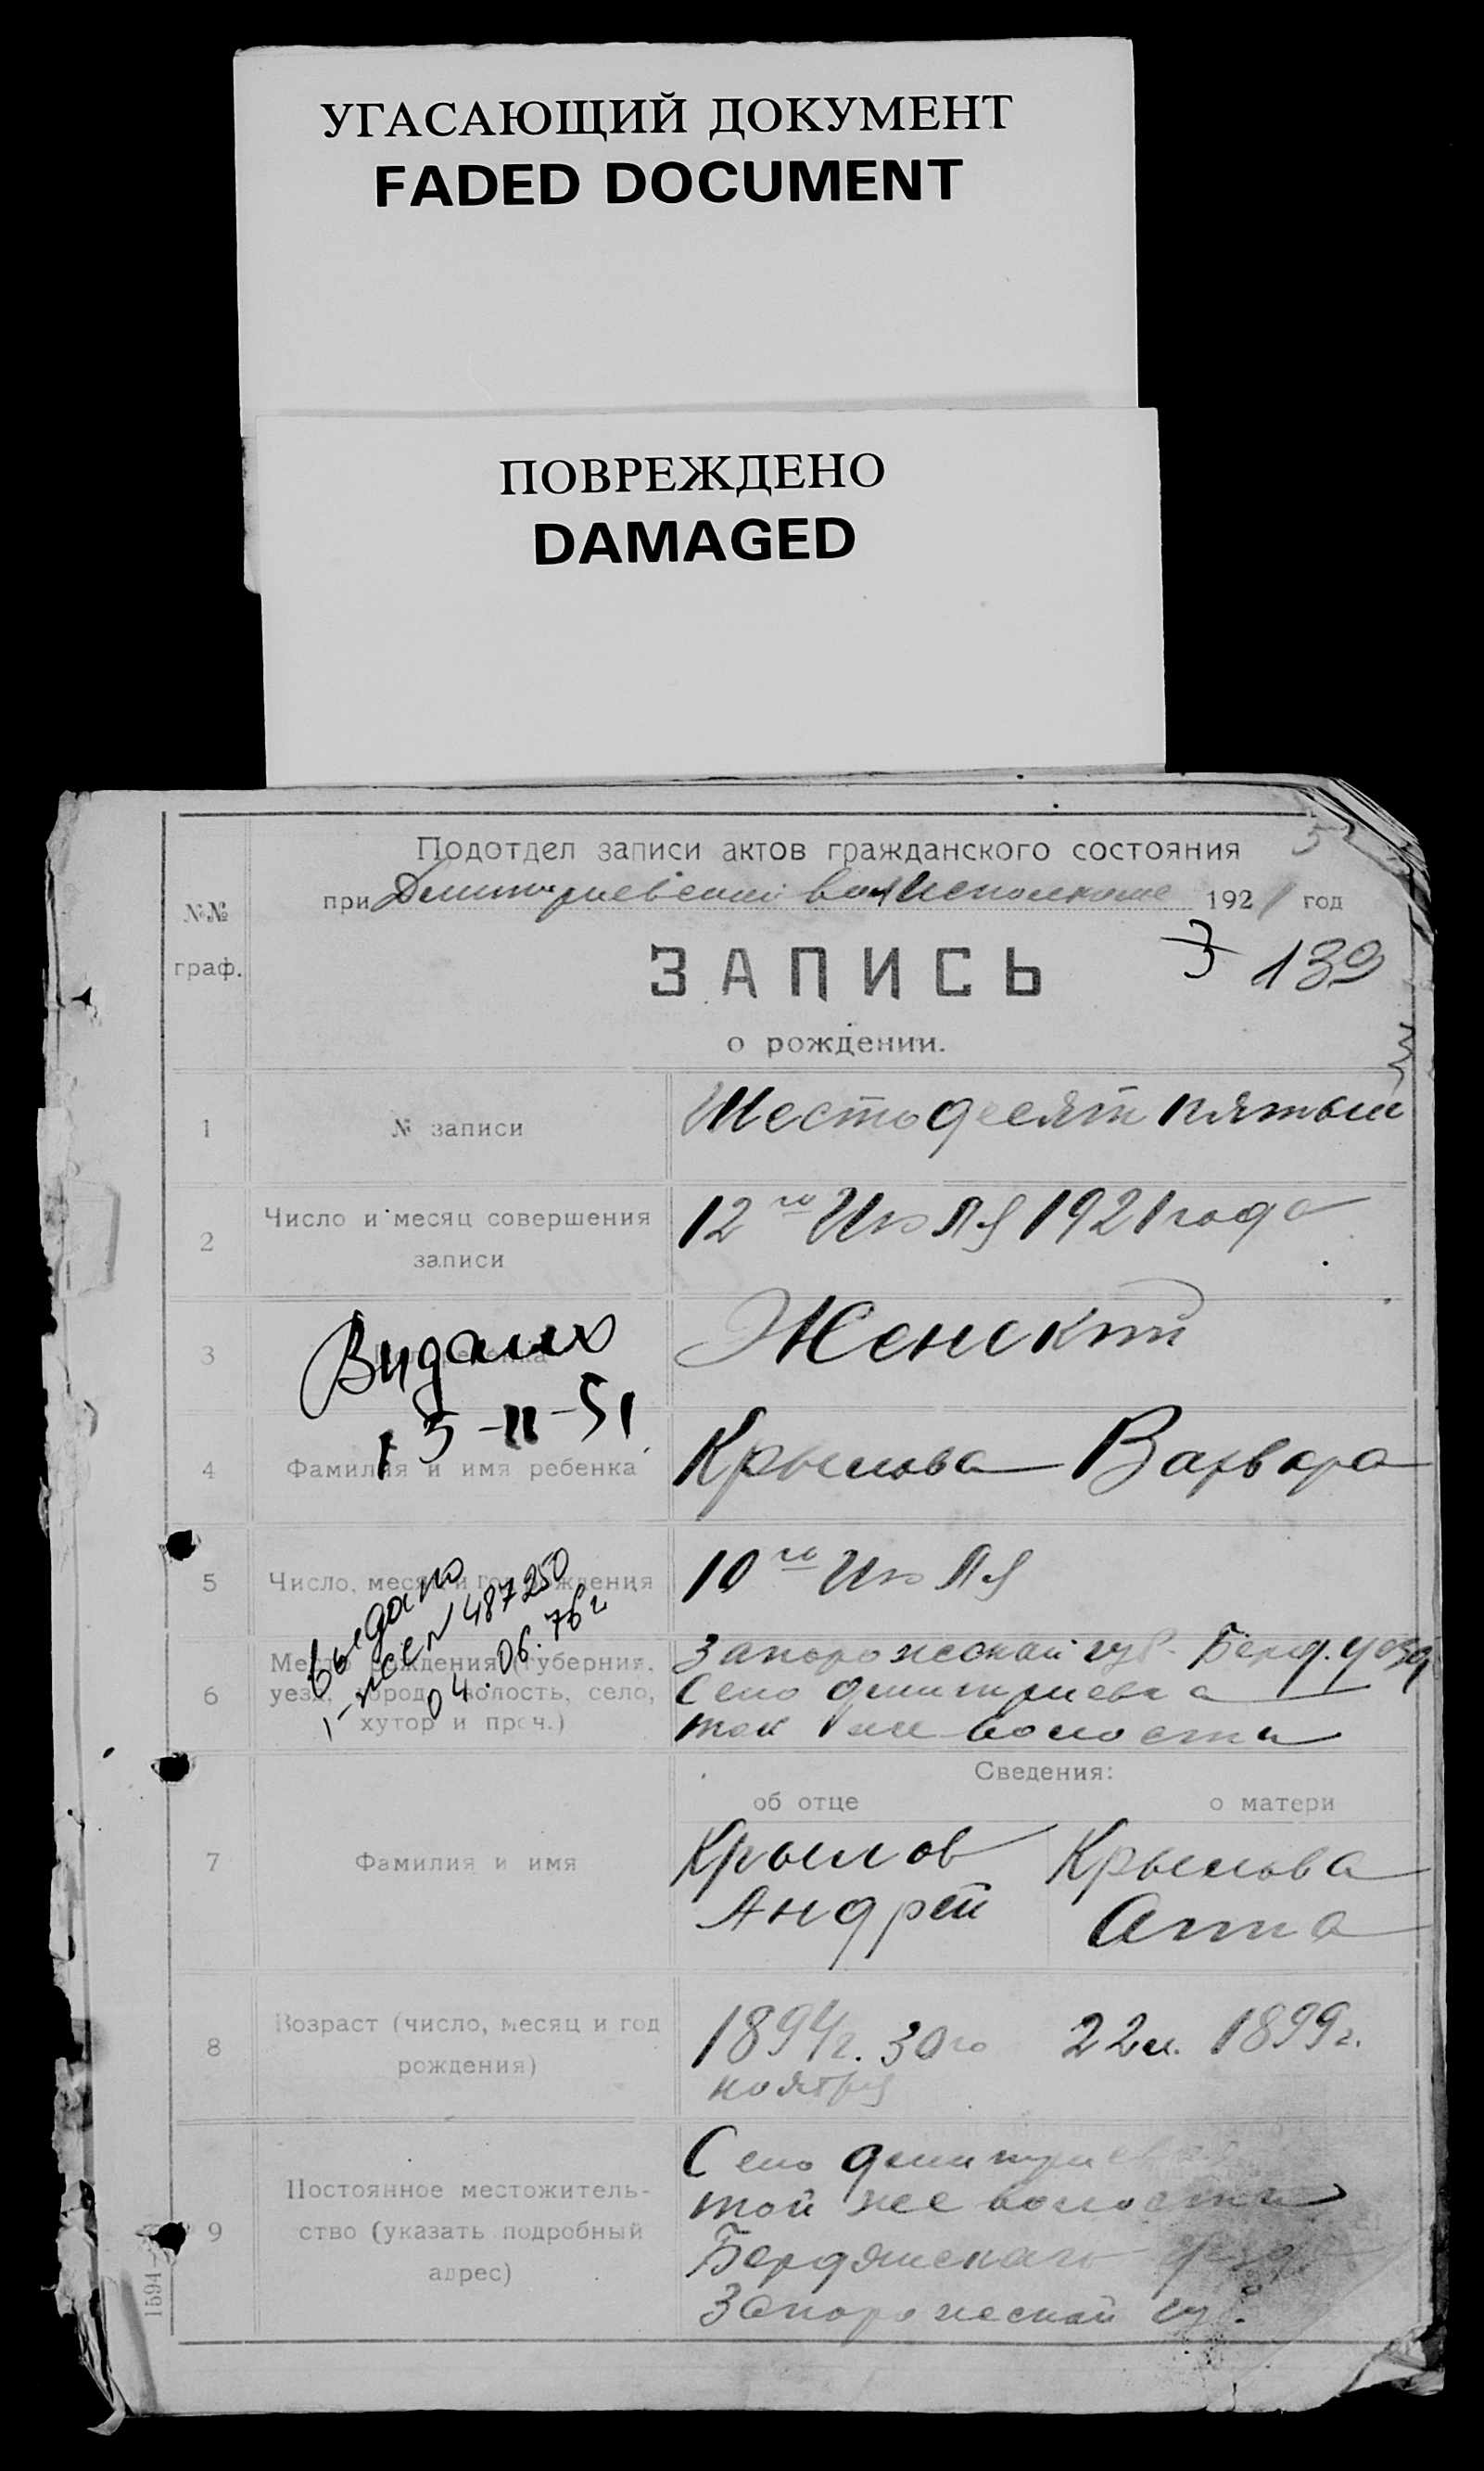 УГАСАЮЩИЙ ДОКУМЕНТ
FADED DOCUMENT
ПОВРЕЖДЕНО
DAMAGED
Подотдел записи актов гражданского состояния
№№
граф.
при Дмитриевском волисполкоме 1921 год
3 139
ЗАПИСЬ
о рождении.
1 № записи Шестодесят пятый
2 Число и месяц совершения
записи
12го Июля 1921 года
3 Женский
Видано
15-II-51
4 Фамилия и имя ребенка Крылова Варвара
5 Число, месяц и год рождения 10го Июля
выдано
N 487250
04.06.76г
6 Место рождения (губерния,
уезд, город, волость, село,
хутор и проч.)
Запорожской губ. Берд. уезд
Село Дмитриевка
той же волости
Сведения:
об отце о матери
7 Фамилия и имя
Крылов Крылова
Андрей Анна
8 Возраст (число, месяц и год
рождения)
1894г. 30го 22л. 1899г.
ноября
9 Постоянное местожитель-
ство (указать подробный
адрес)
Село Дмитриевка
той же волости
Бердянскаго уезда
Запорожской губ.
1594